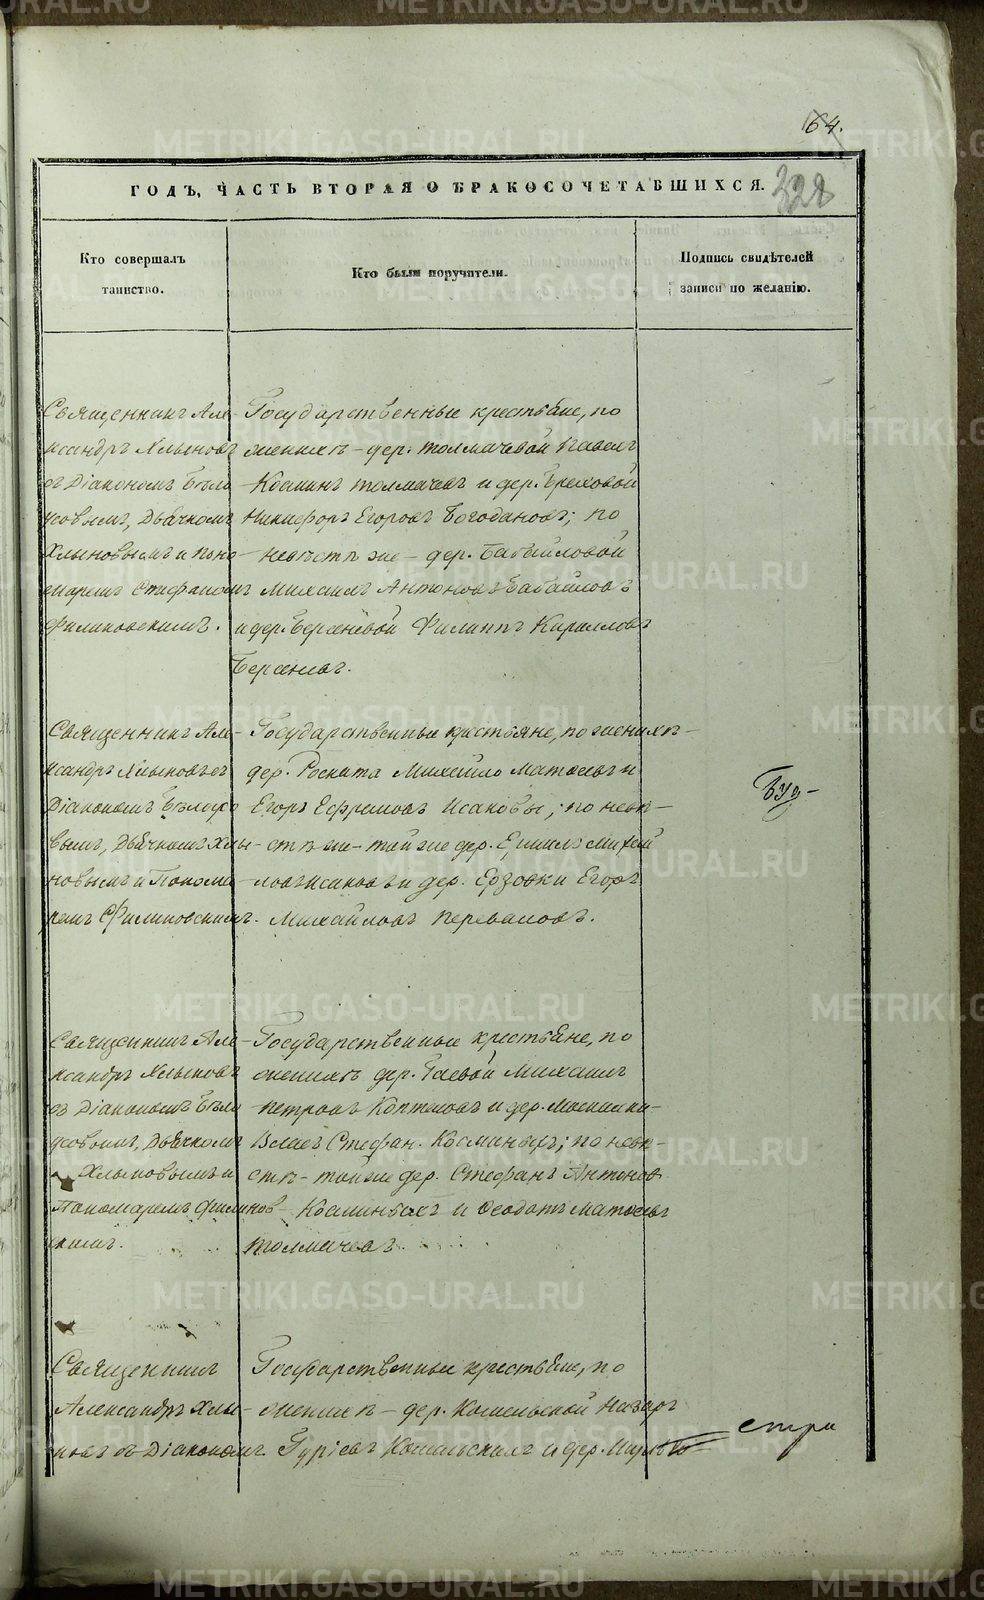 64.
328
ГОДЪ, ЧАСТЬ ВТОРАЯ О БРАКОСОЧЕТАВШИХСЯ.
Кто совершалъ
таинство.
Кто были поручители.
Подпись свидѣтелей
записи по желанію.
Священникъ Але-
ксандръ Хлыновъ
съ Діакономъ Бѣло
усовымъ, Дьячкомъ
Хлыновымъ и Поно
маремъ Стефаномъ
Филиновскимъ.
Государственные крестьяне, по
женихѣ - дер. Толмачевой Павелъ
Козминъ Толмачевъ и дер. Греховой
Никифоръ Егоровъ Богодановъ; по
невѣстѣ же - дер. Бабайловой
Михаилъ Антоновъ Бабайловъ
и дер. Берсеневой Филиппъ Кириловъ
Берсеневъ.
Священникъ Але-
ксандръ Хлыновъ съ
Діакономъ Бѣлоусо
вымъ, Дьячкомъ Хлы-
новымъ и Понома-
ремъ Филиновскимъ.
Государственные крестьяне, по женихѣ -
дер. Михайло Матвеевъ и
Егоръ Ефремовъ Исаковы; по невѣ-
стѣ же - той же дер. Ермилъ Михай
ловъ Исаковъ и дер. Ерзовки Егоръ
Михайловъ Переваловъ.
Буд-
Священникъ Але-
ксандръ Хлыновъ
съ Діакономъ Бѣло
усовымъ, Дьячкомъ
Хлыновымъ и
Пономаремъ Филинов-
скимъ.
Государственные крестьяне, по
женихѣ дер. Гаевой Михаилъ
Петровъ Коптеловъ и дер.
Стефан. Косминыхъ; по невѣ-
стѣ - той же дер. Стефанъ Антонов
Косминыхъ и Ѳеодотъ Матвеевъ
Толмачевъ.
Священникъ
Александръ Хлы-
новъ съ Діакономъ
Государственные крестьяне, по
женихѣ - дер. Комельской Назаръ
Гуріевъ Комельскихъ и дер.
METRIKI.GASO-URAL.RU